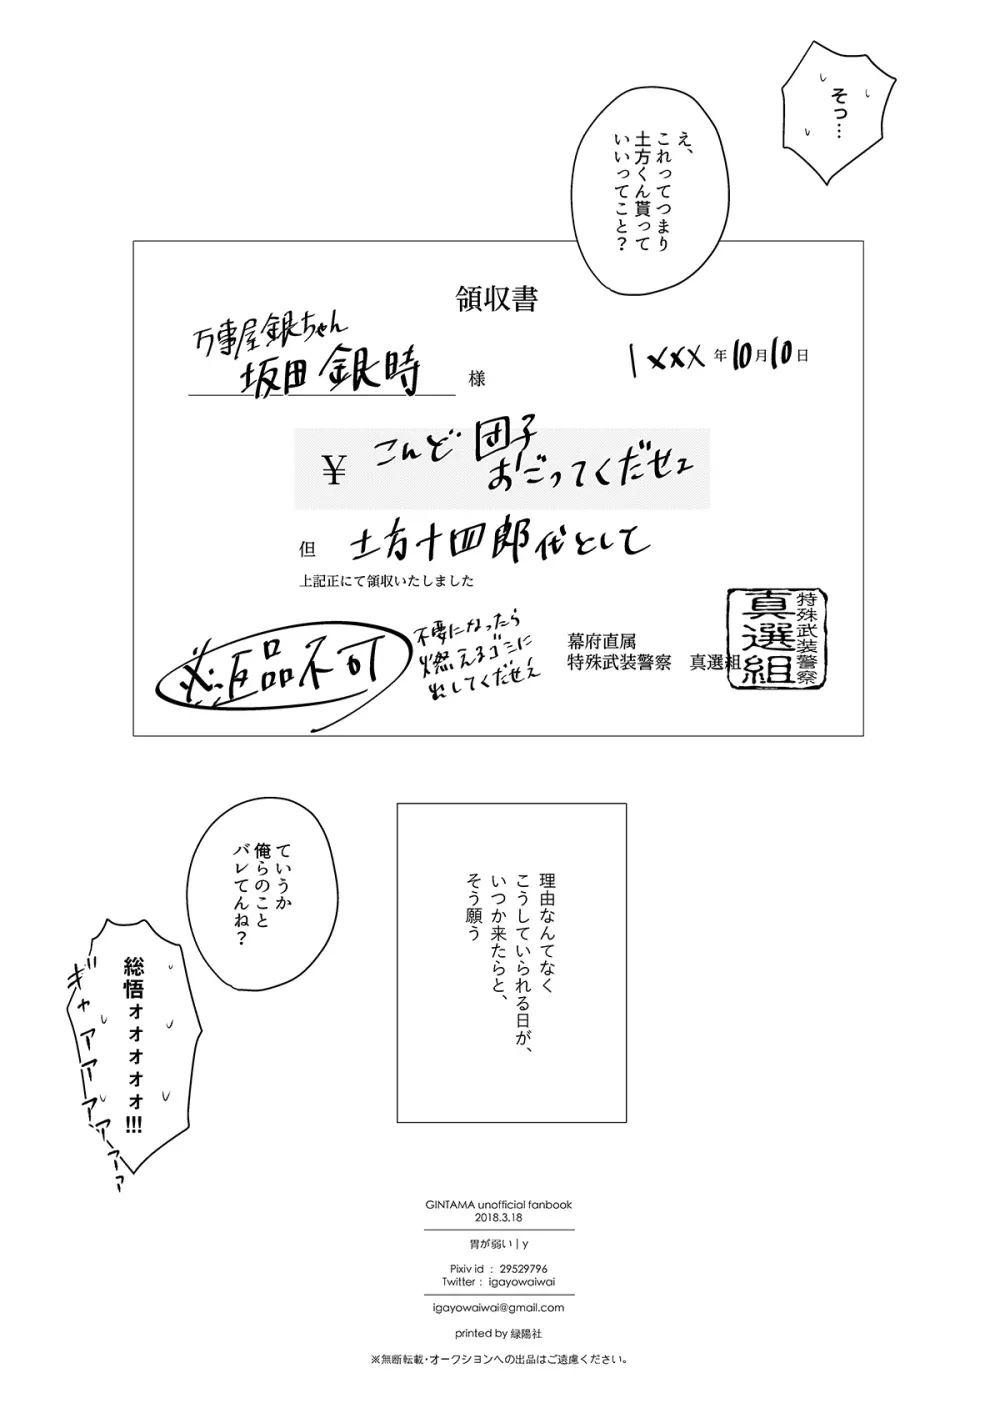 そっ…
え、
これってつまり
土方くん貰って
いいってこと？
領収書
万事屋銀ちゃん
坂田銀時 様
1xxx年10月10日
¥ こんど団子
おごってくだせェ
但 土方十四郎代として
上記正にて領収いたしました
※返品不可
不要になったら
燃えるゴミに
出してくだせえ
幕府直属
特殊武装警察 真選組
特殊武装警察
真選組
ていうか
俺らのこと
バレてんね？
総悟ォォォォォ!!!
ギャアアアアアァァ
理由なんてなく
こうしていられる日が、
いつか来たらと、
そう願う
GINTAMA unofficial fanbook
2018.3.18
胃が弱い | y
Pixiv id : 29529796
Twitter : igayowaiwai
igayowaiwai@gmail.com
printed by 緑陽社
※無断転載・オークションへの出品はご遠慮ください。